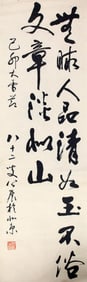 無瑕人品清如玉不俗
文章淡似山
己卯大雪節
八十二叟於北京